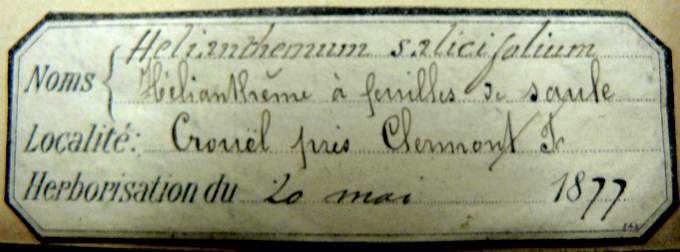 Helianthemum salicifolium
Noms { Hélianthême à feuilles de saule
Localité: Crouël près Clermont F
Herborisation du 20 mai 1877